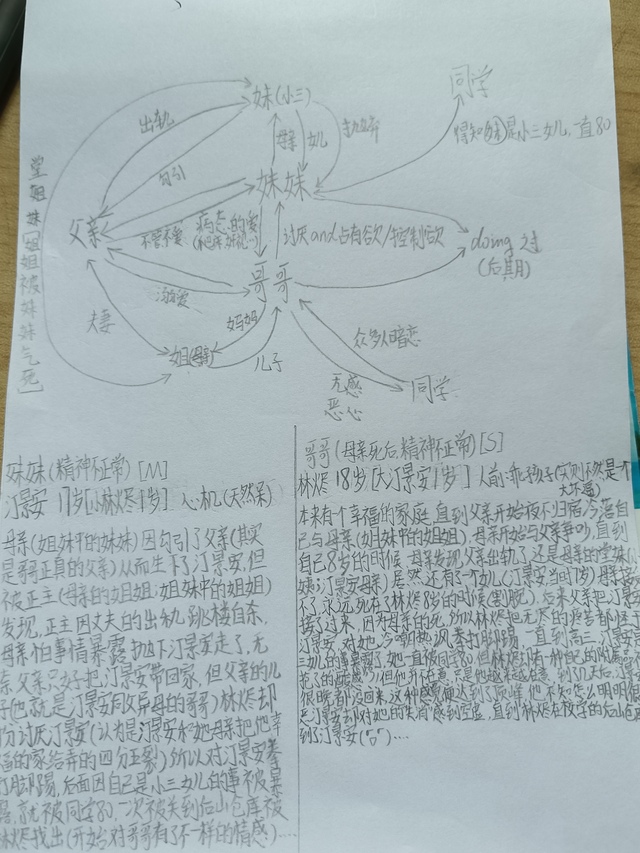 妹(小三)
同学
出轨
勾引
母亲
女儿
得知(妹)是小三女儿,一直80
妹妹
堂姐妹[姐姐被妹妹气死]
父亲
不管不爱
病态的爱
讨厌and占有欲/控制欲
doing 过
(后期)
哥哥
溺爱
夫妻
妈妈
姐(母亲)
儿子
众多人暗恋
无感
恶心
同学
妹妹(精神不正常)[M]
汀景安 17岁[小林烬1岁] 心机(天然呆)
母亲(姐妹中的妹妹)因勾引了父亲(其实
是哥哥真的父亲)从而生下了汀景安,但
被正主(母亲的姐姐:姐妹中的姐姐)
发现,正主因丈夫的出轨跳楼自杀,
母亲怕事情暴露抛下汀景安走了,无
奈父亲只好把汀景安带回家,但父亲的儿
子(也就是汀景安同父异母的哥哥)林烬却
十分讨厌汀景安(认为是汀景安和她母亲把他幸
福的家给弄的四分五裂)所以对汀景安拳
打脚踢,后面因自己是小三女儿的事被暴
露,就被同学80,一次被关到后山仓库被
林烬找出(开始对哥哥有了不一样的情感)....
哥哥(母亲死后精神不正常)[S]
林烬 18岁[大汀景安1岁]人前:乖孩子
本来有个幸福的家庭,直到父亲开始夜不归宿,冷落自
己与母亲(姐妹中的姐姐),母亲开始与父亲争吵,直到
自己8岁的时候,母亲发现父亲出轨了,还是母亲的堂妹
汀景安母亲)居然还有了一个女儿(汀景安当时7岁)母亲
不了,永远死在了林烬8岁的时候(割腕),后来父亲把汀景安
接了过来,因为母亲的死,所以林烬把无尽的
汀景安,对她冷嘲热讽拳打脚踢,一直到高三,汀景安
三女儿的事暴露了,她一直被同学80,但林烬却有一种自己的
犯了的
很晚都没回来,这种感觉便达到了顶峰,他不知怎么明明很
汀景安却对她的失踪感到空虚,直到林烬在校学的后山仓
到了汀景安